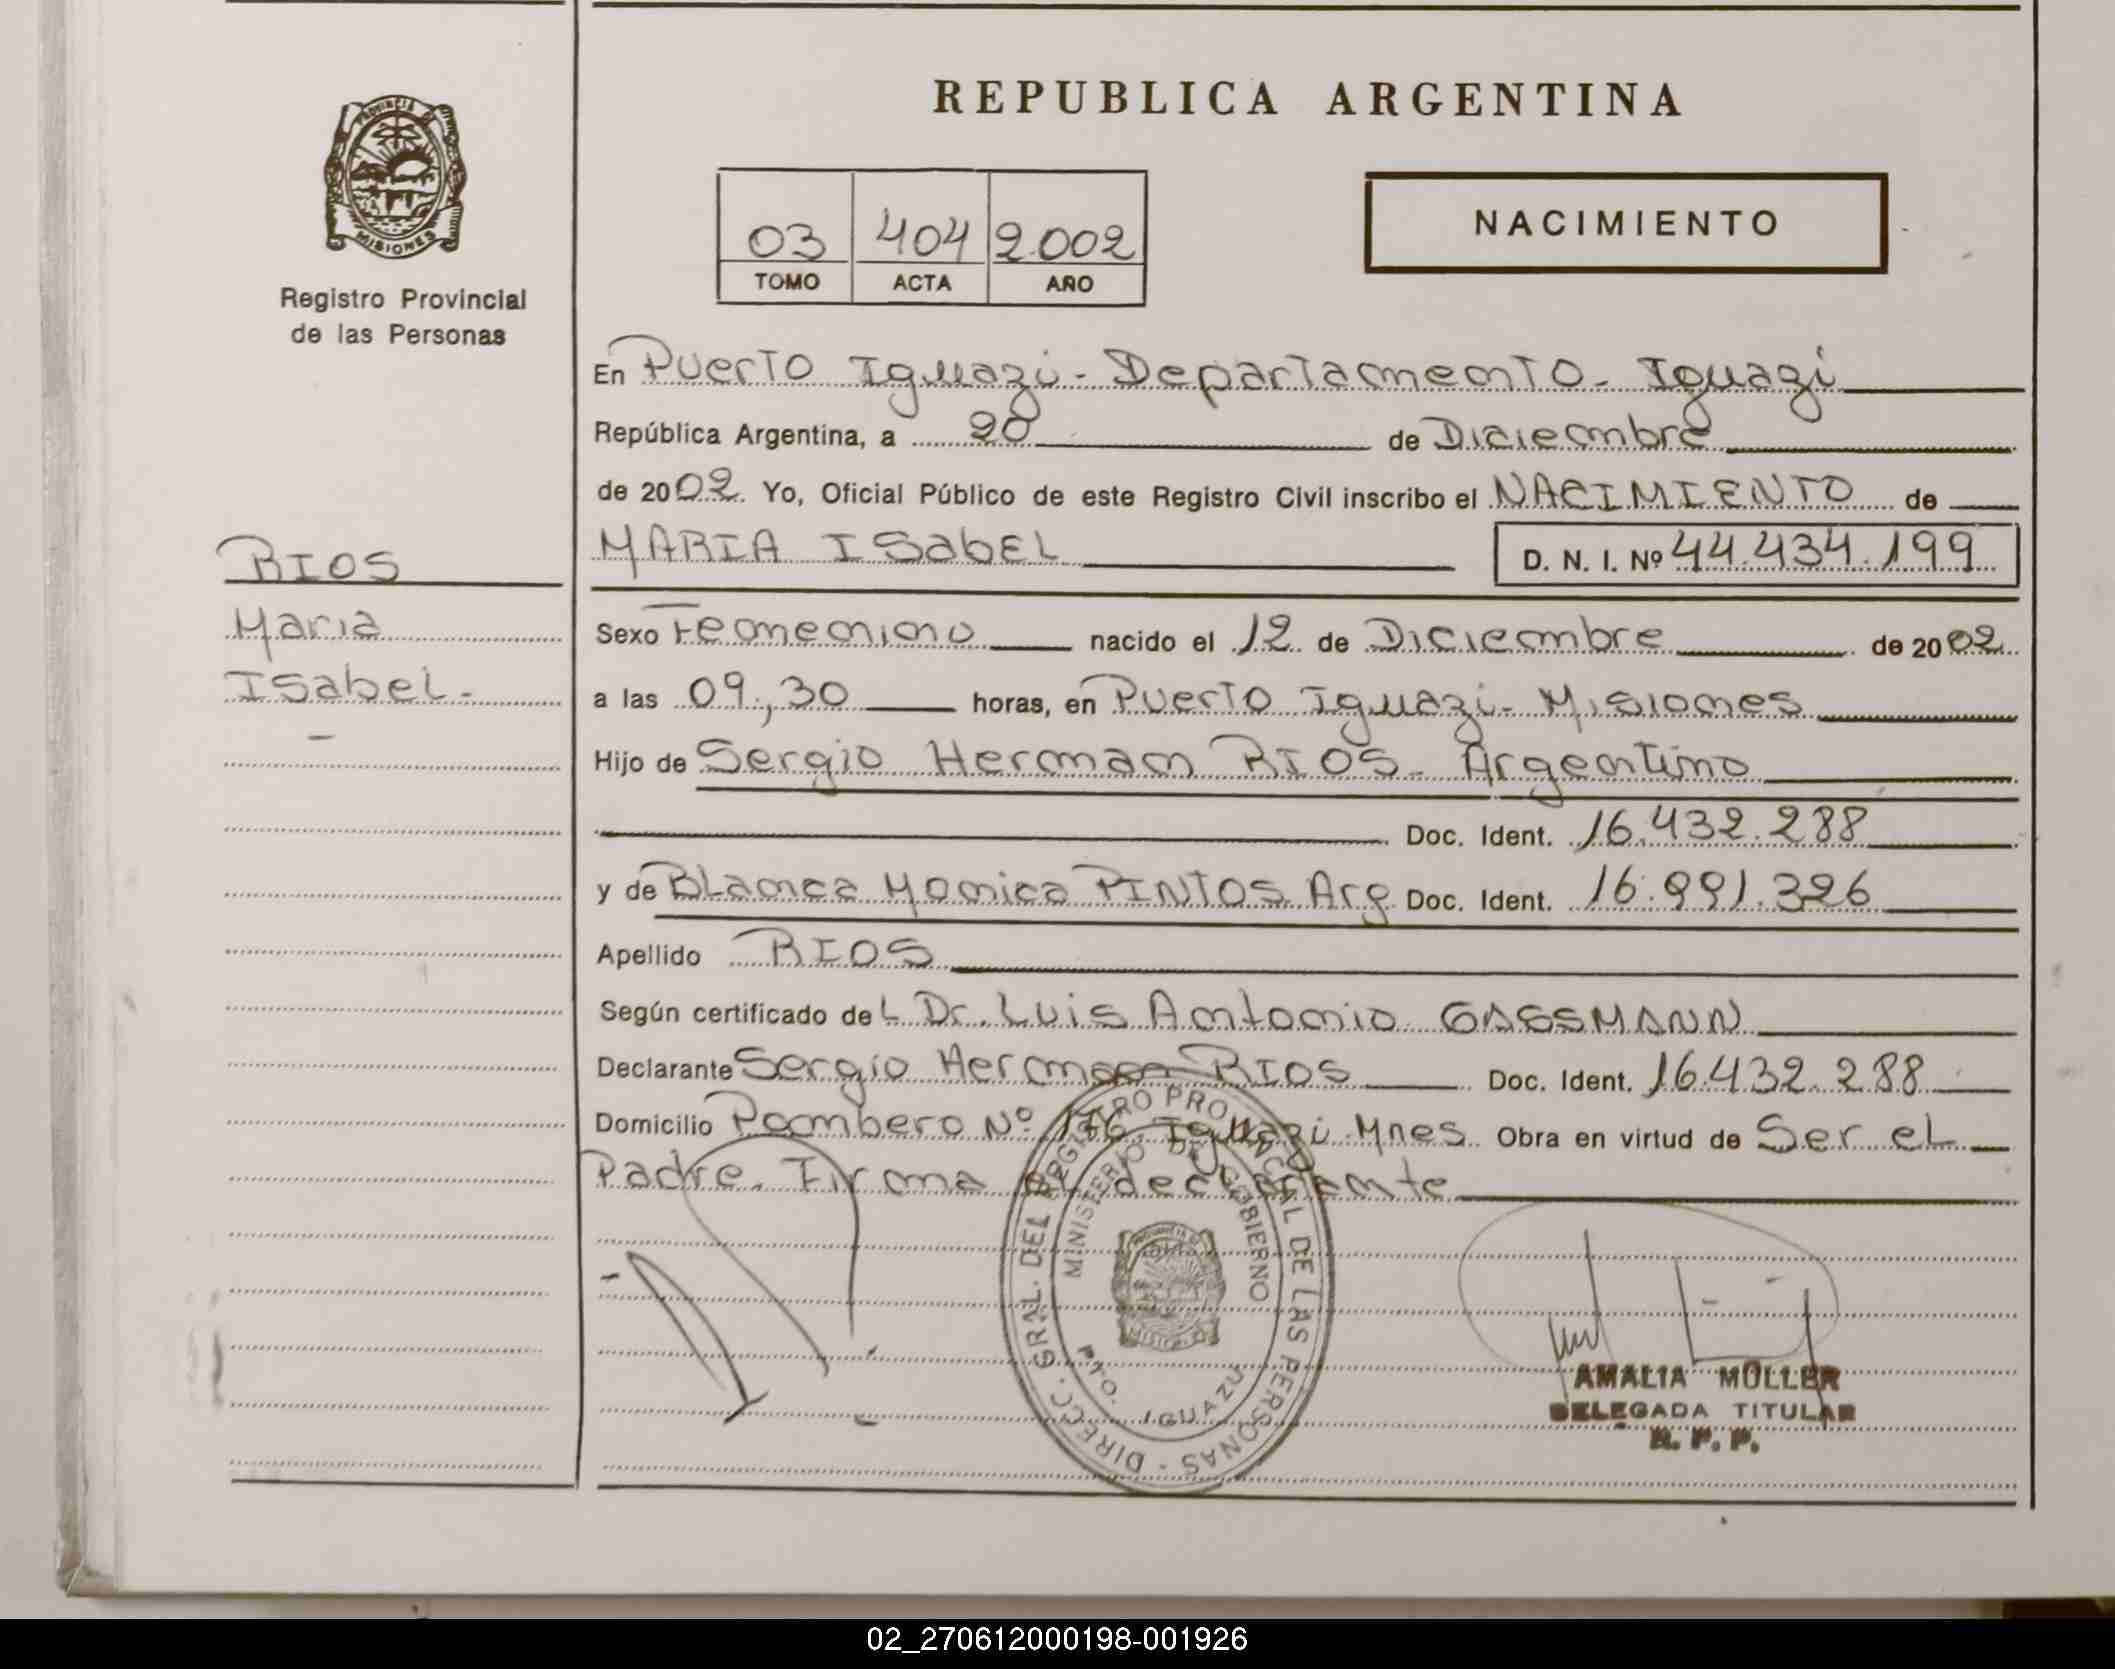 REPUBLICA ARGENTINA
PROVINCIA DE
MISIONES
Registro Provincial
de las Personas
03 404 2.002
TOMO ACTA AÑO
NACIMIENTO
En Puerto Iguazú - Departamento - Iguazú
República Argentina, a 20 de Diciembre
de 2002. Yo, Oficial Público de este Registro Civil inscribo el NACIMIENTO de
MARIA ISabEL D. N. I. Nº 44.434.199
RIOS
Maria
ISabeL.-
Sexo Femenino nacido el 12 de Diciembre de 2002
a las 09:,30 horas, en Puerto Iguazú - Misiones
Hijo de Sergio Herman RIOS - Argentino
Doc. Ident. 16.432.288
y de BLanca Monica PINTOS Arg Doc. Ident. 16.991.326
Apellido RIOS
Según certificado deL Dr. Luis Antonio GASSMANN
Declarante Sergio Herman RIOS Doc. Ident. 16.432.288
Domicilio Pombero Nº 176 Iguazú - Mnes Obra en virtud de Ser eL
Padre. Firma eL decLarante
DIRECC. GRAL. DEL REGISTRO PROVINCIAL DE LAS PERSONAS
MINISTERIO DE GOBIERNO
PTO. IGUAZU
AMALIA MULLER
DELEGADA TITULAR
R. P. P.
02_270612000198-001926